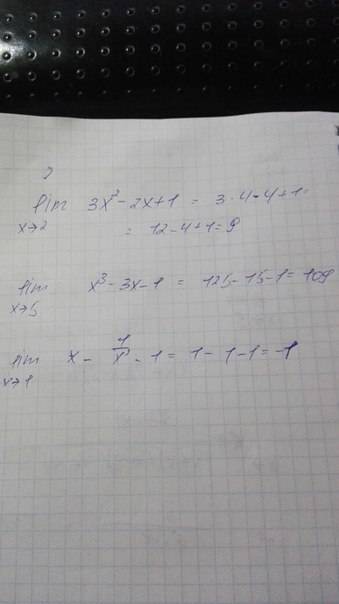 2
lim 3x² - 2x + 1 = 3 · 4 - 4 + 1 =
x→2 = 12 - 4 + 1 = 9
lim x³ - 3x - 1 = 125 - 15 - 1 = 109
x→5
lim x - 1/x - 1 = 1 - 1 - 1 = -1
x→1